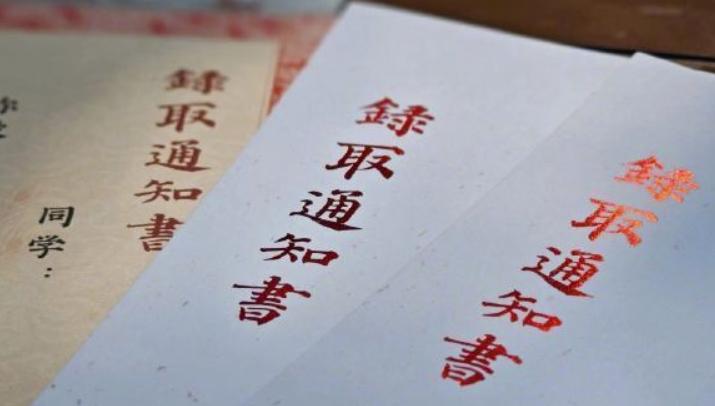 録取通知書
同学：
録取通知書
録取通知書